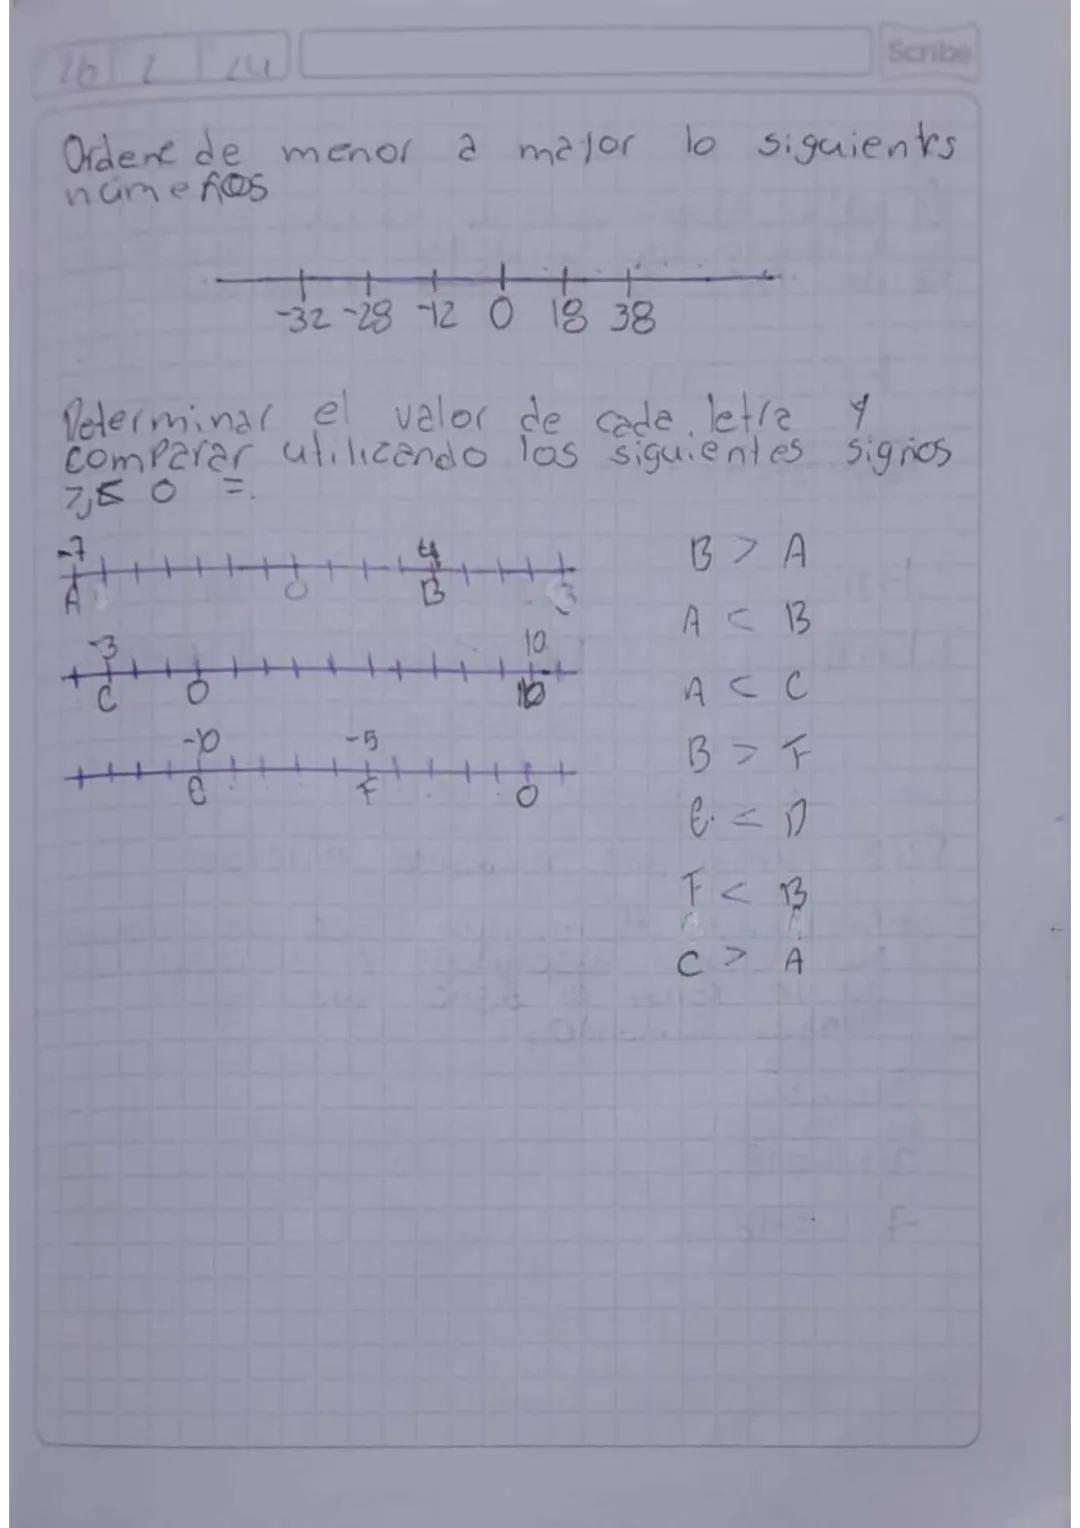 26 2 24
Scribe
Ordene de menor a major lo siguientes
números
-32 -28 -12 0 18 38
Determinar el valor de cada letra y
comparar utilizando los siguientes signos
>,< o =.
-7 4
A 0 B
-3 10
C 0 D
-10 -5
E F 0
B > A
A < B
A < C
B > F
E < D
F < B
C > A